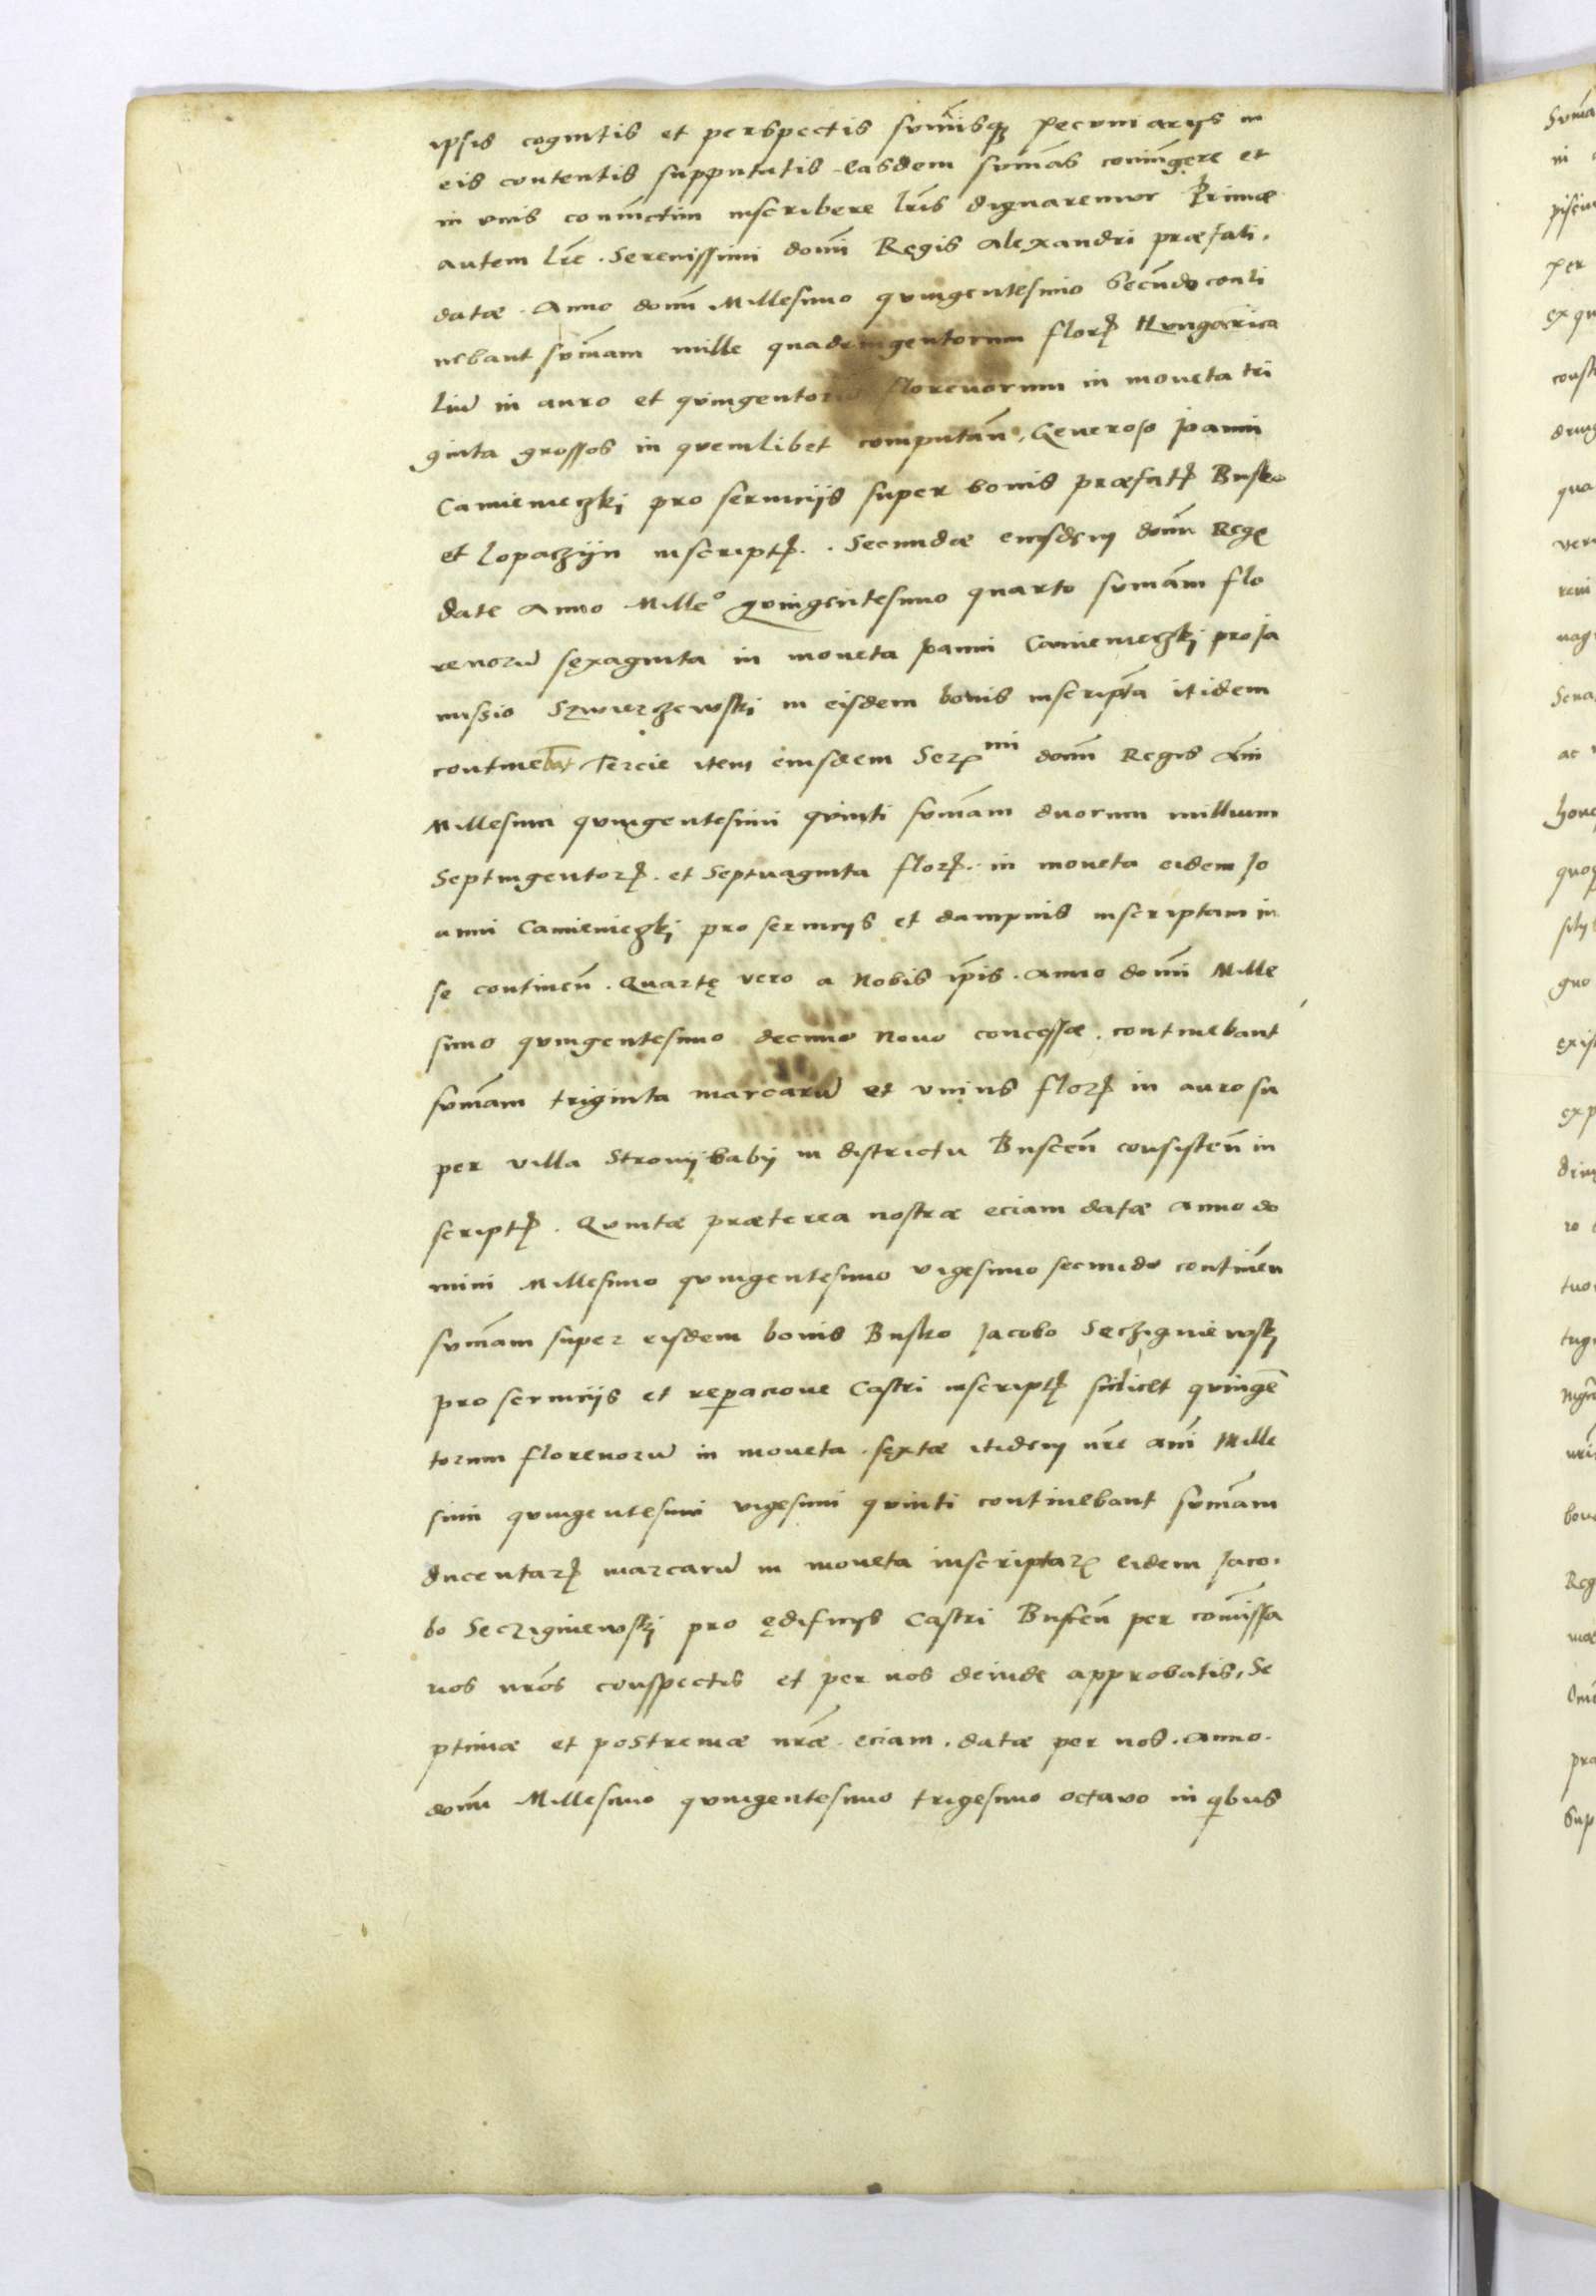 ipsis cognitis et perspectis sum̄isq₃ pecuniarijs in
eis contentis supputatis easdem sum̄as coniungere et
in unis coniunctim inscribere lr̄is dignaremur Primæ
autem lr̄e . Serenissimi domī Regis Alexandri præfati .
datæ . Anno domī Millesimo quingentesimo Secundo conti
nebant sum̄am mille quadringentorum florꝝ Hungarica
liū in auro et quingentorū florenorum in moneta tri
ginta grossos in quemlibet computan̄ , Generoso Joanni
Camieneczkj pro seruicijs super bonis præfatꝭ Busko
et Lopaczijn inscriptꝭ . Secundæ eiusdem domī Regꝭ
date Anno Milleº quingentesimo quarto sumām flo
renorū sexaginta in moneta Joanni Camieneczkj pro Ja
nussio Szwierzewskj in eisdem bonis inscripta itidem
continebāt Tercie item eiusdem Serᵐⁱ domī Regis Anī
Millesimi quingentesimi quinti sum̄am duorum millium
Septingentorꝝ . et Septuaginta florꝝ . in moneta eidem Jo
anni Camienieczkj pro seruicijs et dampnis inscriptam in
se continen̄ . Quartę vero a Nobis ip̄is . Anno domī Mille
simo quingentesimo decimo Nouo concessæ . continebant
sum̄am triginta marcarū et unius florꝝ in auro su
per villa Stronijbabij in districtu Buscen̄ consisten̄ in
scriptꝭ . Quintæ præterea nostræ eciam datæ Anno do
mini Millesimo quingentesimo vigesimo secundo continēn
sum̄am super eisdem bonis Busko Jacobo Seczigniewskj
pro seruicijs et reparacione Castri inscriptꝭ scilicet quingē
torum florenorū in moneta . sextæ itidem nr̄e Anī Mille
simi quingentesimi vigesimi quinti continebant sum̄am
ducentarꝝ marcarū in moneta inscriptarꝝ eidem Jaco .
bo Secziginiewskj pro ędificijs Castri Buscen̄ per com̄issa
rios nr̄os conspectis et per nos deinde approbatis , Se
ptimæ et postremæ nr̄æ . eciam . datæ per nos . Anno .
domī Millesimo quingentesimo trigesimo octavo in qibus